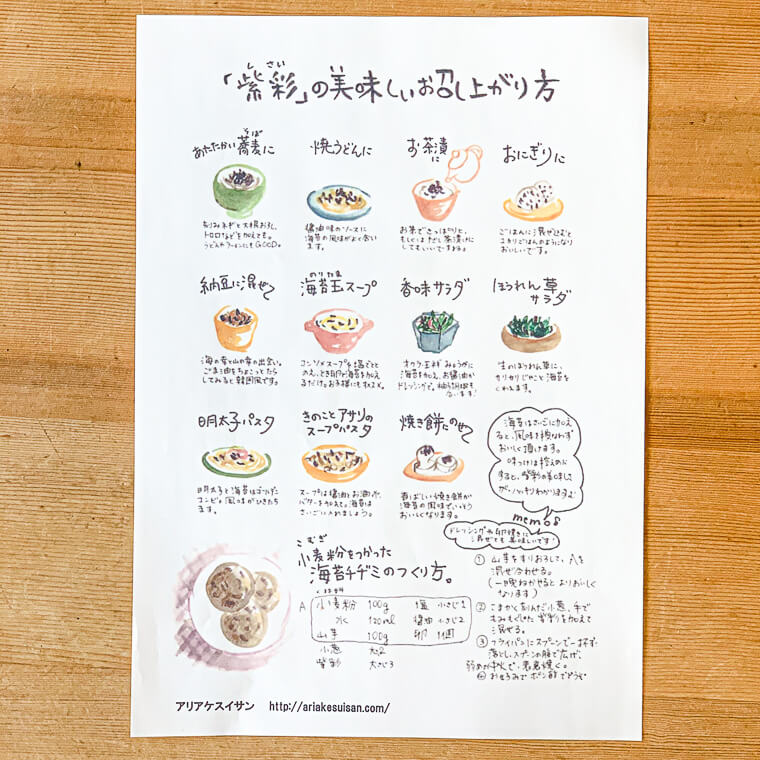 しさい
「紫彩」の美味しいお召し上がり方
そば
あたたかい蕎麦に
刻みネギと大根おろし、
トロロなどを加えても。
うどんやラーメンにもGOOD。
焼うどんに
醤油味のソースに
海苔の風味がよく合い
ます。
お茶漬に
お茶でさっぱりと、
もしくはだし茶漬けに
してもいいですね。
おにぎりに
ごはんに混ぜ込むと
ユカリごはんのようになり
おいしいです。
納豆に混ぜて
海の幸と山の幸の出会い。
ごま油をちょこっとたら
してみると韓国風です。
のりたま
海苔玉スープ
コンソメスープを塩でとと
のえ、とき卵と海苔を加え
るだけ。お子様にもオススメ。
香味サラダ
オクラ、玉ネギ、みょうがに
海苔を加え、お醤油か
ドレッシングで。柚子胡椒も
合います!
ほうれん草
サラダ
生のほうれん草に、
カリカリじゃこと海苔を
くわえます。
明太子パスタ
明太子と海苔はゴールデン
コンビ。風味がひきたち
ます。
きのことアサリの
スープパスタ
スープは醤油とお酒少々、
バターを加えて。海苔は
さいごに入れましょう。
焼き餅にのせて
香ばしい焼き餅が
海苔の風味でいっそう
おいしくなります。
海苔はさいごに加え
ると、風味を損なわず
おいしく頂けます。
味つけは控えめに
すると、紫彩の美味しさ
がハッキリわかりますよ
memo
ドレッシングや卵焼きに
混ぜても美味しいです!
こむぎ
小麦粉をつかった
海苔チヂミのつくり方。
材料
A
小麦粉 100g 塩 小さじ1
水 120ml 醤油 小さじ2
山芋 100g 卵 1個
小葱
紫彩 大さじ3
① 山芋をすりおろして、Aを
混ぜ合わせる。
(一晩ねかせるとよりおいしく
なります)
② こまかく刻んだ小葱、手で
もみもぐした紫彩を加えて
混ぜる。
③ フライパンにスプーンで一杯ずつ
落とし、スプーンの腹で広げ、
弱めの中火で、両面焼く。
④ おこのみでポン酢でどうぞ
アリアケスイサン http://ariakesuisan.com/